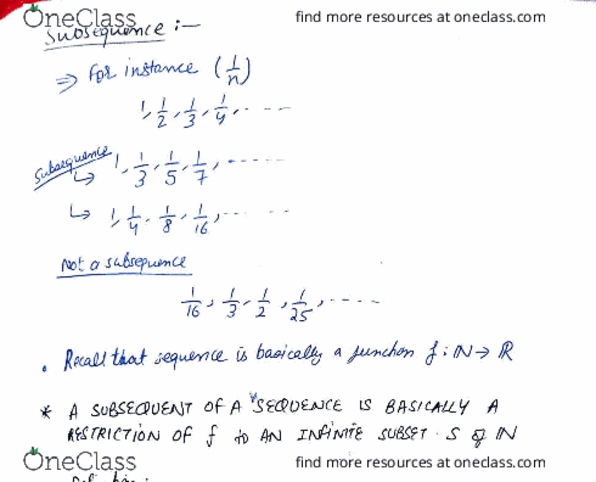 OneClass find more resources at oneclass.com
Subsequence :—
⇒ For instance (1/n)
1, 1/2, 1/3, 1/4, ......
Subsequence
↳ 1, 1/3, 1/5, 1/7, ......
↳ 1, 1/4, 1/8, 1/16, ......
Not a subsequence
1/16, 1/3, 1/2, 1/25, ......
• Recall that sequence is basically a function f : ℕ → ℝ
* A SUBSEQUENT OF A SEQUENCE IS BASICALLY A
RESTRICTION OF f to AN INFINITE SUBSET S of ℕ
OneClass find more resources at oneclass.com